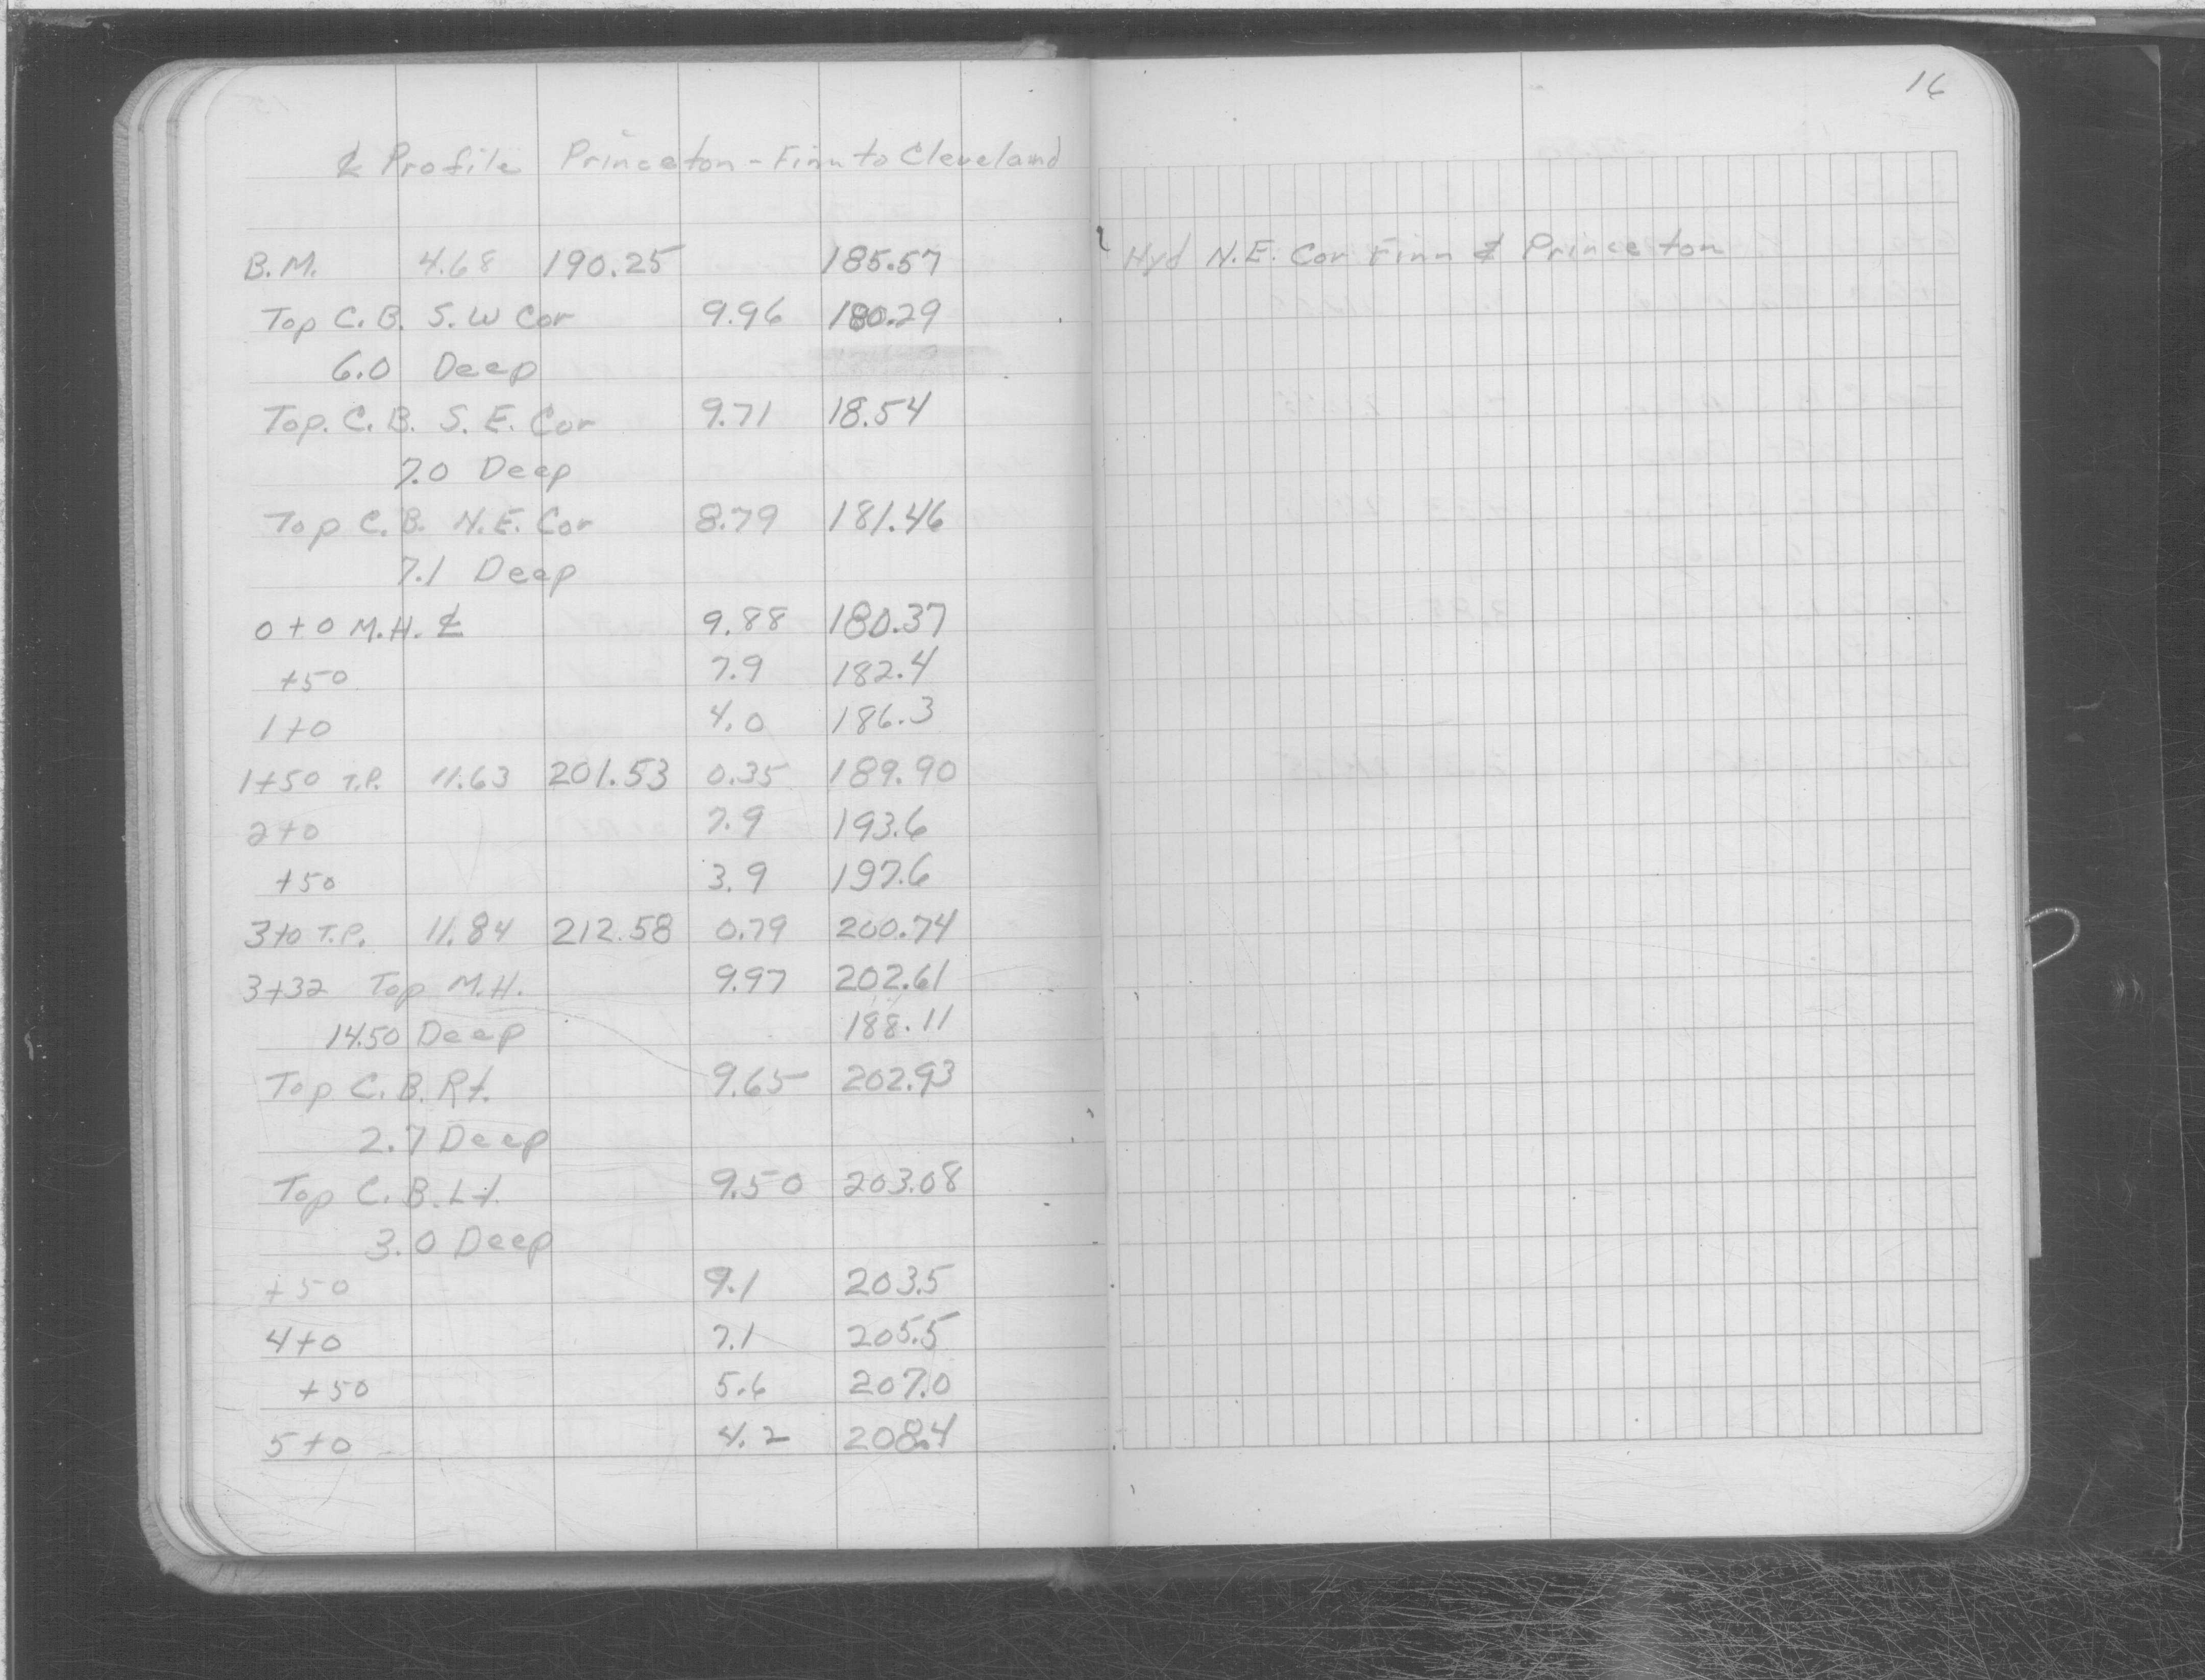 16
℄ Profile Princeton - Finn to Cleveland
B.M. 4.68 190.25 185.57 Hyd N.E. Cor Finn & Princeton
Top C.B. S.W Cor 9.96 180.29
6.0 Deep
Top. C.B. S.E. Cor 9.71 18.54
7.0 Deep
Top C.B. N.E. Cor 8.79 181.46
7.1 Deep
0+0 M.H. ℄ 9.88 180.37
+50 7.9 182.4
1+0 4.0 186.3
1+50 T.P. 11.63 201.53 0.35 189.90
2+0 7.9 193.6
+50 3.9 197.6
3+0 T.P. 11.84 212.58 0.79 200.74
3+32 Top M.H. 9.97 202.61
14.50 Deep 188.11
Top C.B. Rt. 9.65 202.93
2.7 Deep
Top C.B. Lt. 9.50 203.08
3.0 Deep
+50 9.1 203.5
4+0 7.1 205.5
+50 5.6 207.0
5+0 4.2 208.4